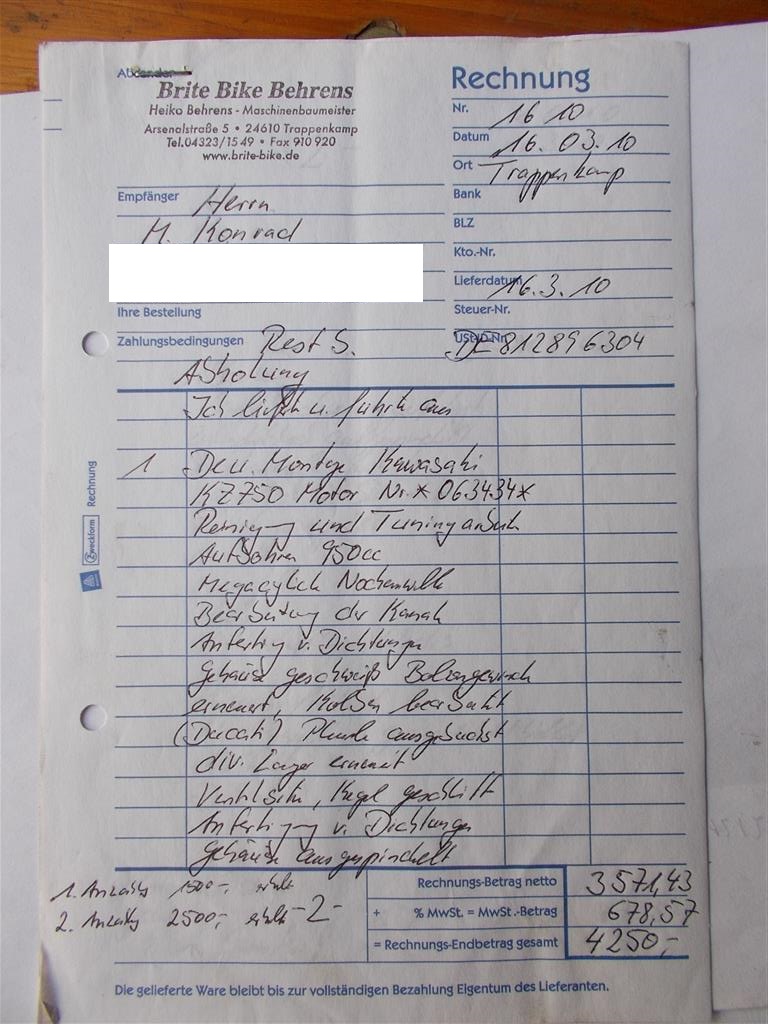 Absender
Brite Bike Behrens
Heiko Behrens - Maschinenbaumeister
Arsenalstraße 5 • 24610 Trappenkamp
Tel.04323/15 49 • Fax 910 920
www.brite-bike.de
Rechnung
Nr. 16 10
Datum 16.03.10
Ort Trappenkamp
Bank
BLZ
Kto.-Nr.
Lieferdatum 16.3.10
Steuer-Nr.
USt-ID-Nr. DE812896304
Empfänger Herrn
M. Konrad
Ihre Bestellung
Zahlungsbedingungen Rest b.
Abholung
Ich lieferte u. führte aus
1 De u. Montage Kawasaki
KZ750 Motor Nr.*063434*
Reinigung und Tuningarbeit
Aufbohren 950cc
Megacycle Nockenwelle
Bearbeitung der Kanäle
Anfertig v. Dichtungen
Gehäuse geschweißt Bolzengewinde
erneuert, Kolben bearbeitet
(Ducati) Pleuele ausgebuchst
div. Lager erneuert
Ventilsitze, Kegel geschleift
Anfertigung v. Dichtungen
Gehäuse ausgespindelt
1. Anzahlg 1500,- erhalt
2. Anzahlg 2500,- erhalt -2-
Rechnungs-Betrag netto 3571,43
+ % MwSt. = MwSt.-Betrag 678,57
= Rechnungs-Endbetrag gesamt 4250,-
Die gelieferte Ware bleibt bis zur vollständigen Bezahlung Eigentum des Lieferanten.
Zweckform Rechnung